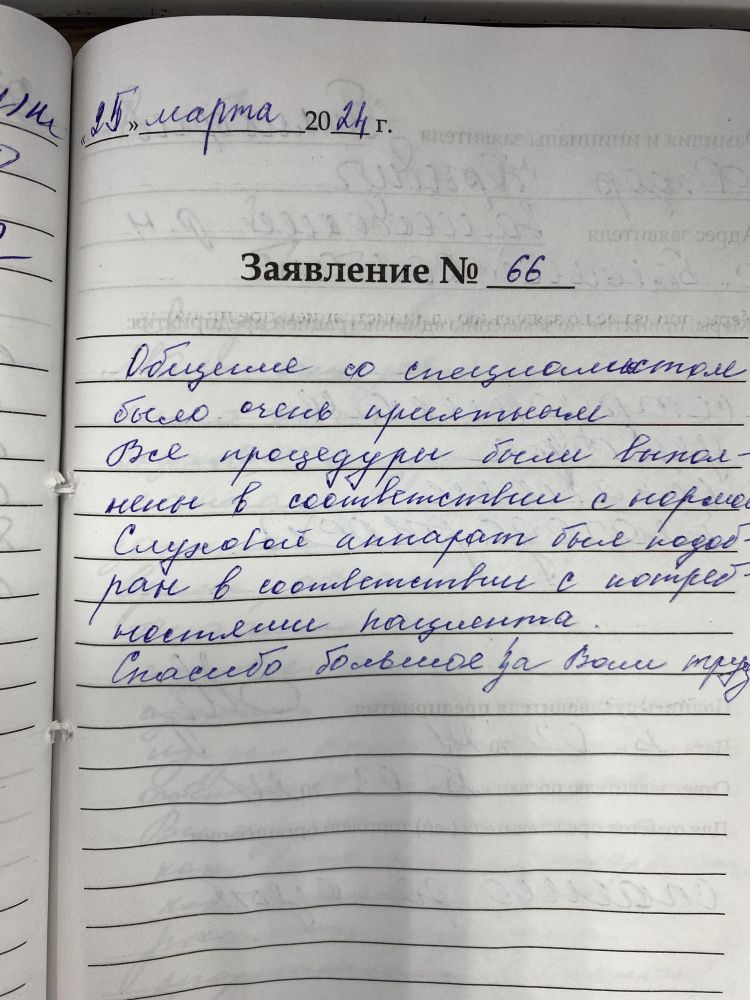 «25» марта 2024 г.
Заявление № 66
Общение со специалистом
было очень приятным
Все процедуры были выпол-
нены в соответствии с нормами
Слуховой аппарат был подоб-
ран в соответствии с потреб-
ностями пациента.
Спасибо большое за Ваш труд